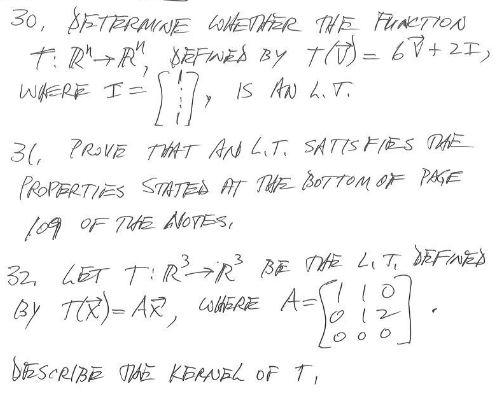 30. DETERMINE WHETHER THE FUNCTION
T: ℝⁿ→ℝⁿ, DEFINED BY T(v⃗) = 6v⃗ + 2I,
WHERE I = [1 ⋮ 1], IS AN L.T.
31. PROVE THAT AN L.T. SATISFIES THE
PROPERTIES STATED AT THE BOTTOM OF PAGE
109 OF THE NOTES.
32. LET T: ℝ³→ℝ³ BE THE L.T. DEFINED
BY T(x⃗) = Ax⃗, WHERE A = [1 1 0
0 1 2
0 0 0].
DESCRIBE THE KERNEL OF T.